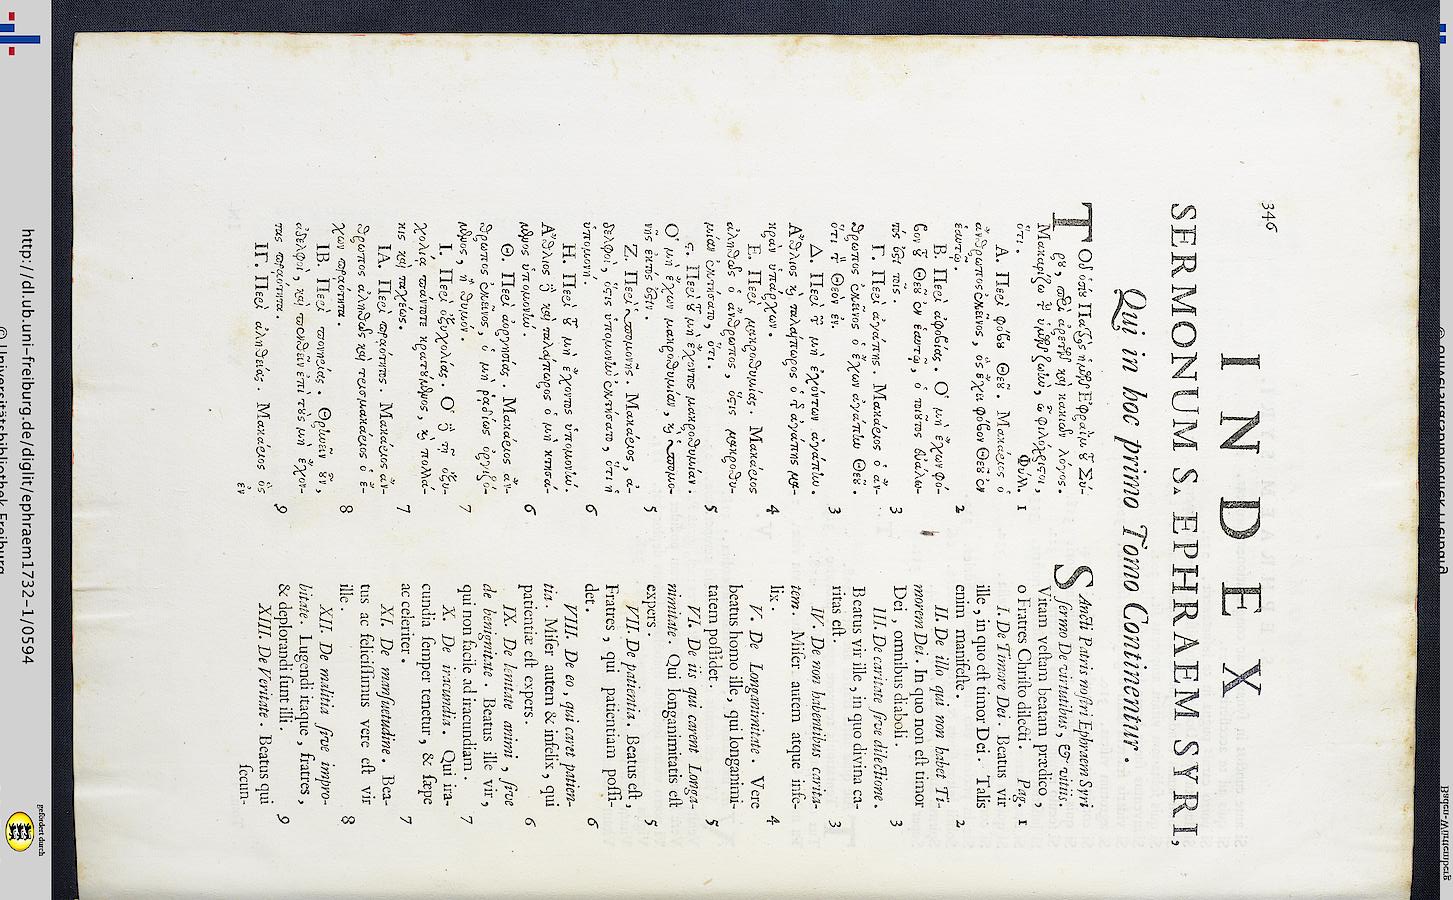 346
I N D E X
SERMONUM S. EPHRAEM SYRI,
Qui in hoc primo Tomo Continentur.
Τοῦ ὁσίου Πατρὸς ἡμῶν Ἐφραὶμ τοῦ Σύ-
ρου, περὶ ἀρετῶν καὶ κακιῶν λόγος.
Μακαρίζω τὴν ὑμῶν ζωὴν, ὦ φιλόχριστοι,
ὅτι. Φύλ. 1
Α. Περὶ φόβου Θεοῦ. Μακάριος ὁ
ἄνθρωπος ἐκεῖνος, ὃς ἔχει φόβον Θεοῦ ἐν
ἑαυτῷ. 2
Β. Περὶ ἀφοβίας. Ὁ μὴ ἔχων φό-
βον τοῦ Θεοῦ ἐν ἑαυτῷ, ὁ τοιοῦτος εὐάλω-
τός ἐστι τοῖς. 3
Γ. Περὶ ἀγάπης. Μακάριος ὁ ἄν-
θρωπος ἐκεῖνος ὁ ἔχων ἀγάπην Θεοῦ.
ὅτι τὸν Θεὸν ἐν. 3
Δ. Περὶ τῶν μὴ ἐχόντων ἀγάπην.
Ἄθλιος καὶ ταλαίπωρος ὁ τῆς ἀγάπης μα-
κρὰν ὑπάρχων. 4
Ε. Περὶ μακροθυμίας. Μακάριος
ἀληθῶς ὁ ἄνθρωπος, ὅστις μακροθυ-
μίαν ἐκτήσατο, ὅτι. 5
ς. Περὶ τοῦ μὴ ἔχοντος μακροθυμίαν.
Ὁ μὴ ἔχων μακροθυμίαν, καὶ ὑπομο-
νῆς ἐκτός ἐστιν. 5
Ζ. Περὶ ὑπομονῆς. Μακάριος, ἀ-
δελφοὶ, ὅστις ὑπομονὴν ἐκτήσατο, ὅτι ἡ
ὑπομονή. 6
Η. Περὶ τοῦ μὴ ἔχοντος ὑπομονήν.
Ἄθλιος δὲ καὶ ταλαίπορος ὁ μὴ κτησά-
μενος ὑπομονήν. 6
Θ. Περὶ ἀοργησίας. Μακάριος ἄν-
θρωπος ἐκεῖνος, ὁ μὴ ῥαδίως ὀργιζό-
μενος, ἢ θυμόν. 7
Ι. Περὶ ὀξυχολίας. Ὁ δὲ τῇ ὀξυ-
χολίᾳ πάντοτε κρατούμενος, καὶ πολλά-
κις καὶ ταχέως. 7
ΙΑ. Περὶ πραότητος. Μακάριος ἄν-
θρωπος ἀληθῶς καὶ τρισμακάριος ὁ ἔ-
χων πραότητα. 8
ΙΒ. Περὶ πονηρίας. Θρήνειν οὖν,
ἀδελφοὶ, καὶ πενθεῖν ἐπὶ τοὺς μὴ ἔχον-
τας πραότητα. 9
ΙΓ. Περὶ ἀληθείας. Μακάριος ὃς
ἐν
SAncti Patris nostri Ephraem Syri
sermo De virtutibus, & vitiis.
Vitam vestam beatam prædico,
o Fratres Christo dilecti. Pag. 1
I. De Timore Dei. Beatus vir
ille, in quo est timor Dei. Talis
enim manifeste. 2
II. De illo qui non habet Ti-
morem Dei. In quo non est timor
Dei, omnibus diaboli. 3
III. De caritate sive dilectione.
Beatus vir ille, in quo divina ca-
ritas est. 3
IV. De non habentibus carita-
tem. Miser autem atque infe-
lix. 4
V. De Longanimitate. Vere
beatus homo ille, qui longanimi-
tatem possidet. 5
VI. De iis qui carent Longa-
nimitate. Qui longanimitatis est
expers. 5
VII. De patientia. Beatus est,
Fratres, qui patientiam possi-
det. 6
VIII. De eo, qui caret patien-
tia. Miser autem & infelix, qui
patientiæ est expers. 6
IX. De lenitate animi, sive
de benignitate. Beatus ille vir,
qui non facile ad iracundiam. 7
X. De iracundia. Qui ira-
cundia semper tenetur, & sæpe
ac celeriter. 7
XI. De mansuetudine. Bea-
tus ac felicissimus vere est vir
ille. 8
XII. De malitia sive impro-
bitate. Lugendi itaque, fratres,
& deplorandi sunt illi. 9
XIII. De Veritate. Beatus qui
secun-
http://dl.ub.uni-freiburg.de/diglit/ephraem1732-1/0594
© Universitätsbibliothek Freiburg
gefördert durch